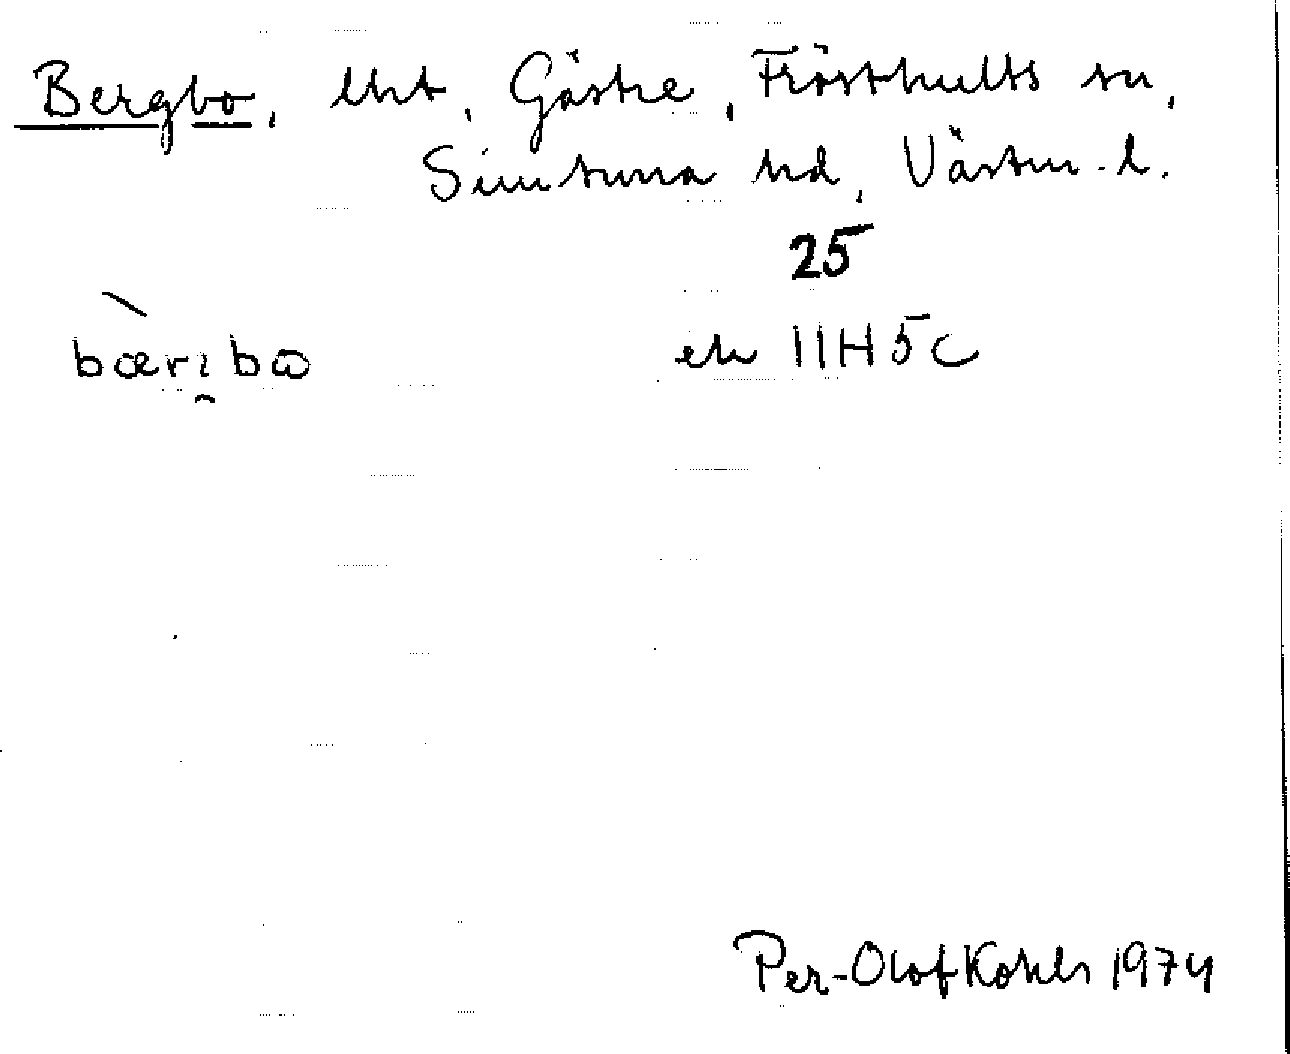 Bergbo, lht, Gästre, Frösthults sn,
Simtuna hd, Västm. l.
25
bærıbɷ ek 11H5c
Per-Olof Kohls 1974